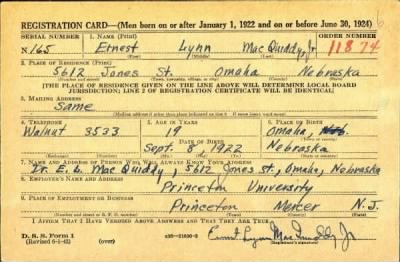 REGISTRATION CARD—(Men born on or after January 1, 1922 and on or before June 30, 1924)
SERIAL NUMBER 1. NAME (Print) ORDER NUMBER
N165 Ernest Lynn MacQuiddy, Jr 11874
(First) (Middle) (Last)
2. PLACE OF RESIDENCE (Print)
5612 Jones St. Omaha Nebraska
(Number and street) (Town, township, village, or city) (County) (State)
[THE PLACE OF RESIDENCE GIVEN ON THE LINE ABOVE WILL DETERMINE LOCAL BOARD
JURISDICTION; LINE 2 OF REGISTRATION CERTIFICATE WILL BE IDENTICAL]
3. MAILING ADDRESS
Same
[Mailing address if other than place indicated on line 2. If same insert word same]
4. TELEPHONE 5. AGE IN YEARS 6. PLACE OF BIRTH
Walnut 3533 19 Omaha,
DATE OF BIRTH (Town or county)
Sept 8, 1922 Nebraska
(Exchange) (Number) (Mo.) (Day) (Yr.) (State or country)
7. NAME AND ADDRESS OF PERSON WHO WILL ALWAYS KNOW YOUR ADDRESS
Dr. E. L. MacQuiddy, 5612 Jones St., Omaha, Nebraska
8. EMPLOYER'S NAME AND ADDRESS
Princeton University
9. PLACE OF EMPLOYMENT OR BUSINESS
Princeton Mercer N.J.
(Number and street or R. F. D. number) (Town) (County) (State)
I AFFIRM THAT I HAVE VERIFIED ABOVE ANSWERS AND THAT THEY ARE TRUE.
D. S. S. Form 1 Ernest Lynn MacQuiddy Jr
(Revised 6-1-42) (over) (Registrant's signature)